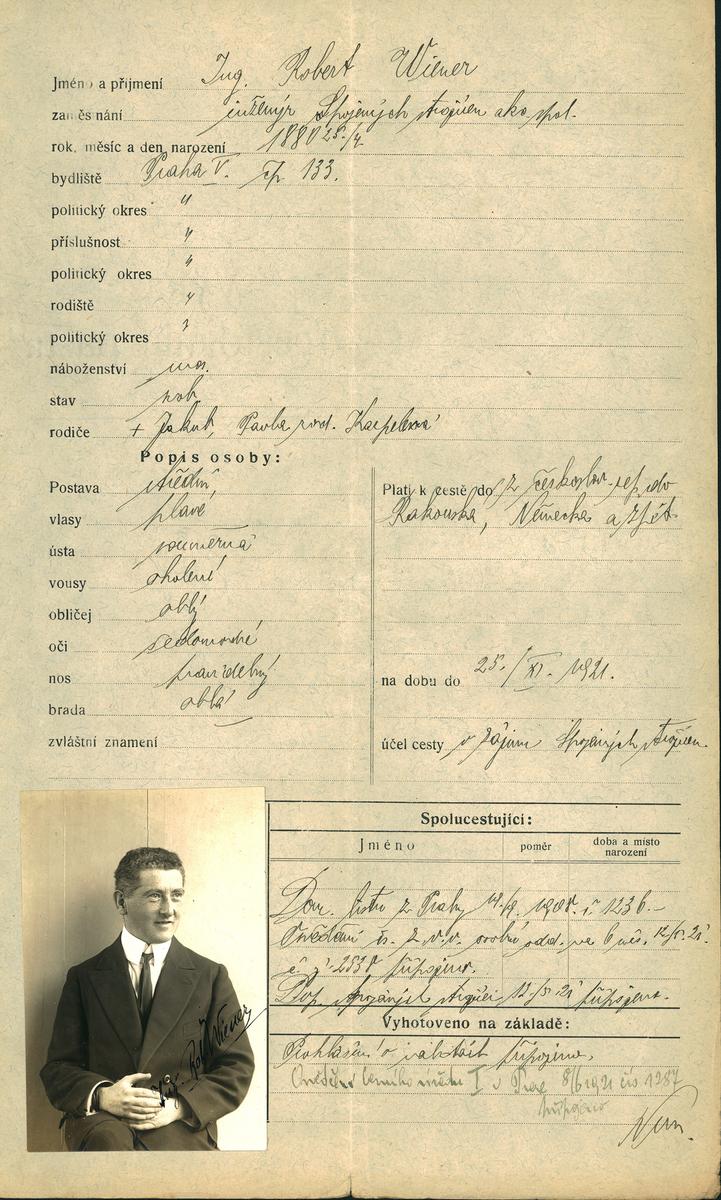 Jméno a přijmení Ing. Robert Wiener
zaměstnání inženýr Spojených
rok, měsíc a den narození 1880 25/4.
bydliště Praha V. čp. 133.
politický okres "
příslušnost "
politický okres "
rodiště "
politický okres "
náboženství mos.
stav svob.
rodiče + Jakub, Pavla roz. Karpelesová
Popis osoby:
Postava střední,
vlasy plavé
ústa souměrná
vousy oholené
obličej oblý
oči šedomodré
nos pravidelný
brada oblá
zvláštní znamení
Platí k cestě do z českoslov. rep. do
Rakouska, Německa a zpět
na dobu do 25./XI. 1921.
účel cesty v zájmu Spojených
Spolucestující:
Jméno poměr doba a místo narození
Dom. listu z Prahy č. 1236.
odd. na 6 měs.
připojeno.
připojeno.
Vyhotoveno na základě:
Prohlášení o připojeno.
I v Praze 8/6 1921 čís 1287
připojeno
Ing. Rob. Wiener